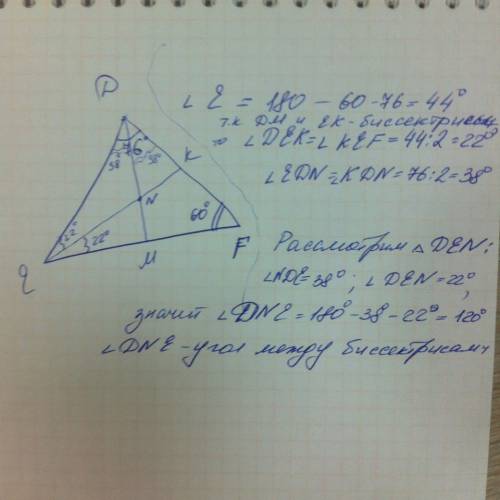 D
∠E = 180 - 60 - 76 = 44°
т.к DM и EK - биссектрисы
то ∠DEK = ∠KEF = 44:2 = 22°
∠EDN = ∠KDN = 76:2 = 38°
38° 38°
K
N
60°
22° 22°
E
M
F
Рассмотрим △DEN:
∠NDE = 38°; ∠DEN = 22°,
значит ∠DNE = 180° - 38 - 22° = 120°
∠DNE - угол между биссектрисами